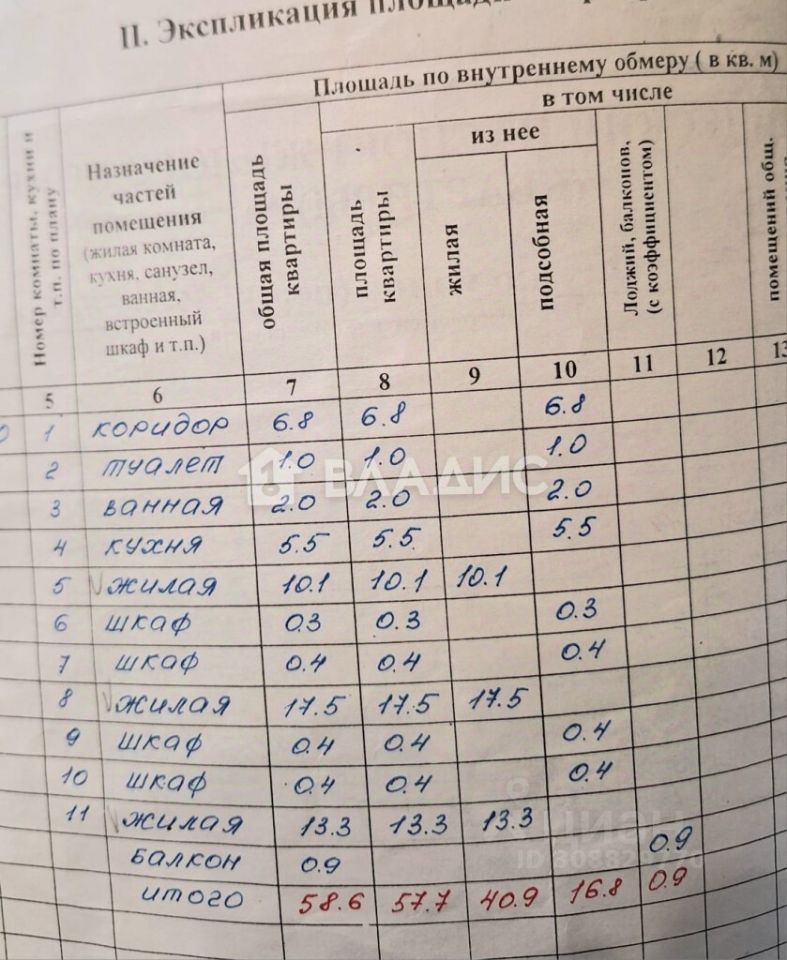 II. Экспликация
Площадь по внутреннему обмеру ( в кв. м)
в том числе
из нее
Номер комнаты, кухни и
т.п. по плану
Назначение
частей
помещения
(жилая комната,
кухня, санузел,
ванная,
встроенный
шкаф и т.п.)
общая площадь
квартиры
площадь
квартиры
жилая
подсобная
Лоджий, балконов,
(с коэффициентом)
помещений общ.
5 6 7 8 9 10 11 12 13
1 коридор 6.8 6.8 6.8
2 туалет 1.0 1.0 1.0
3 ванная 2.0 2.0 2.0
4 кухня 5.5 5.5 5.5
5 жилая 10.1 10.1 10.1
6 шкаф 0.3 0.3 0.3
7 шкаф 0.4 0.4 0.4
8 жилая 17.5 17.5 17.5
9 шкаф 0.4 0.4 0.4
10 шкаф 0.4 0.4 0.4
11 жилая 13.3 13.3 13.3
балкон 0.9 0.9
итого 58.6 57.7 40.9 16.8 0.9
ВЛАДИС